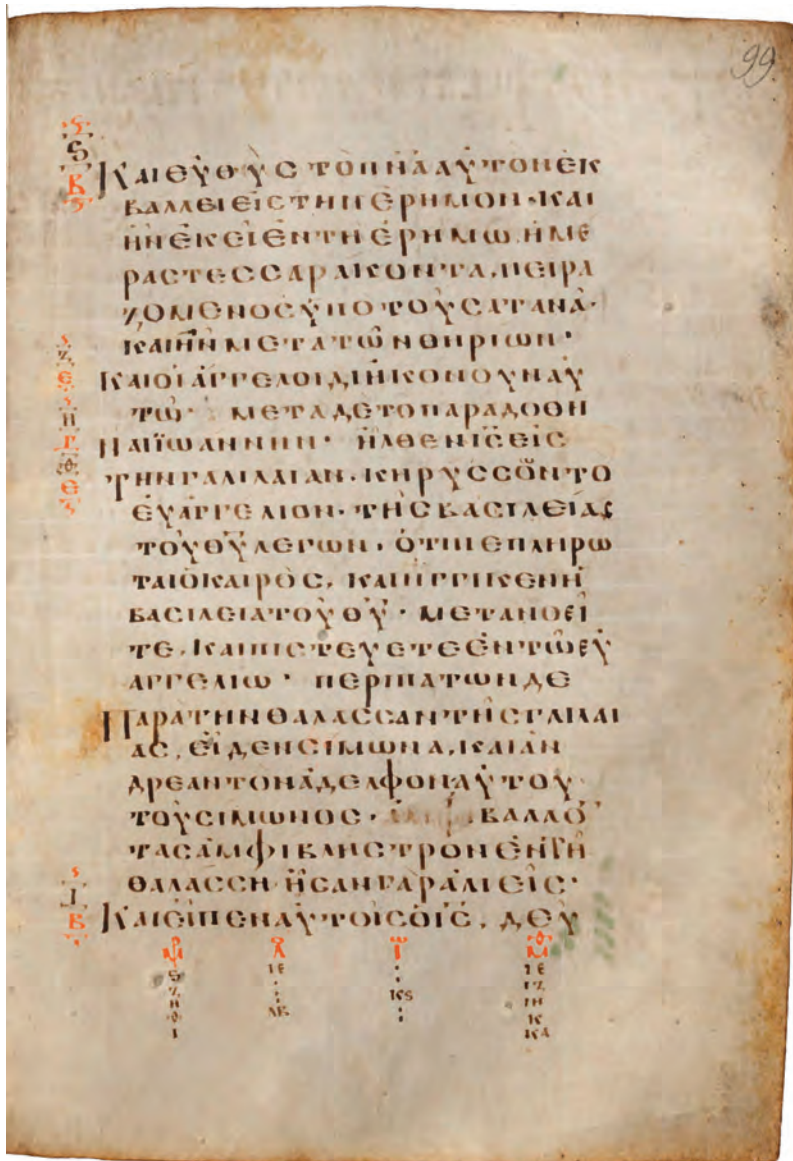 99
ΚΑΙΕΥΘΥϹΤΟΠΝΑΑΥΤΟΝΕΚ
ΒΑΛΛΕΙΕΙϹΤΗΝΕΡΗΜΟΝ·ΚΑΙ
ΗΝΕΚΕΙΕΝΤΗΕΡΗΜΩ.ΗΜΕ
ΡΑϹΤΕϹϹΑΡΑΚΟΝΤΑ.ΠΕΙΡΑ
ΖΟΜΕΝΟϹΥΠΟΤΟΥϹΑΤΑΝΑ·
ΚΑΙΗΝΜΕΤΑΤΩΝΘΗΡΙΩΝ·
ΚΑΙΟΙΑΓΓΕΛΟΙΔΙΗΚΟΝΟΥΝΑΥ
ΤΩ· ΜΕΤΑΔΕΤΟΠΑΡΑΔΟΘΗ
ΝΑΙΪΩΑΝΝΗΝ· ΗΛΘΕΝΙϹΕΙϹ
ΤΗΝΓΑΛΙΛΑΙΑΝ.ΚΗΡΥϹϹΩΝΤΟ
ΕΥΑΓΓΕΛΙΟΝ·ΤΗϹΒΑϹΙΛΕΙΑϹ
ΤΟΥΘΥΛΕΓΩΝ·ΟΤΙΠΕΠΛΗΡΩ
ΤΑΙΟΚΑΙΡΟϹ,ΚΑΙΗΓΓΙΚΕΝΗ
ΒΑϹΙΛΕΙΑΤΟΥΘΥ·ΜΕΤΑΝΟΕΙ
ΤΕ.ΚΑΙΠΙϹΤΕΥΕΤΕΕΝΤΩΕΥ
ΑΓΓΕΛΙΩ· ΠΕΡΙΠΑΤΩΝΔΕ
ΠΑΡΑΤΗΝΘΑΛΑϹϹΑΝΤΗϹΓΑΛΙΛΑΙ
ΑϹ,ΕΙΔΕΝϹΙΜΩΝΑ,ΚΑΙΑΝ
ΔΡΕΑΝΤΟΝΑΔΕΛΦΟΝΑΥΤΟΥ
ΤΟΥϹΙΜΩΝΟϹ· ΒΑΛΛΟ
ΤΑϹΑΜΦΙΒΛΗϹΤΡΟΝΕΝΤΗ
ΘΑΛΑϹϹΗ·ΗϹΑΝΓΑΡΑΛΙΕΙϹ·
ΚΑΙΕΙΠΕΝΑΥΤΟΙϹΟΙϹ,ΔΕΥ
Ε ΙΕ ΙΕ
Ζ ΙΖ
Η ΚϚ ΙΗ
Θ ΛΒ Κ
Ι ΚΑ